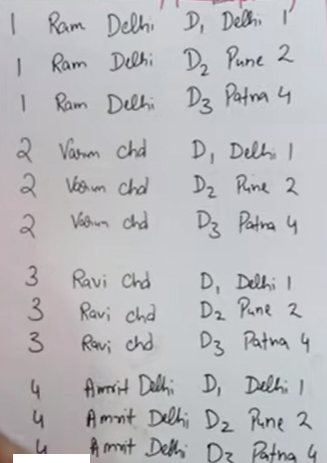 1 Ram Delhi D1 Delhi 1
1 Ram Delhi D2 Pune 2
1 Ram Delhi D3 Patna 4
2 Varun chd D1 Delhi 1
2 Varun chd D2 Pune 2
2 Varun chd D3 Patna 4
3 Ravi Chd D1 Delhi 1
3 Ravi chd D2 Pune 2
3 Ravi chd D3 Patna 4
4 Amrit Delhi D1 Delhi 1
4 Amrit Delhi D2 Pune 2
4 Amrit Delhi D3 Patna 4